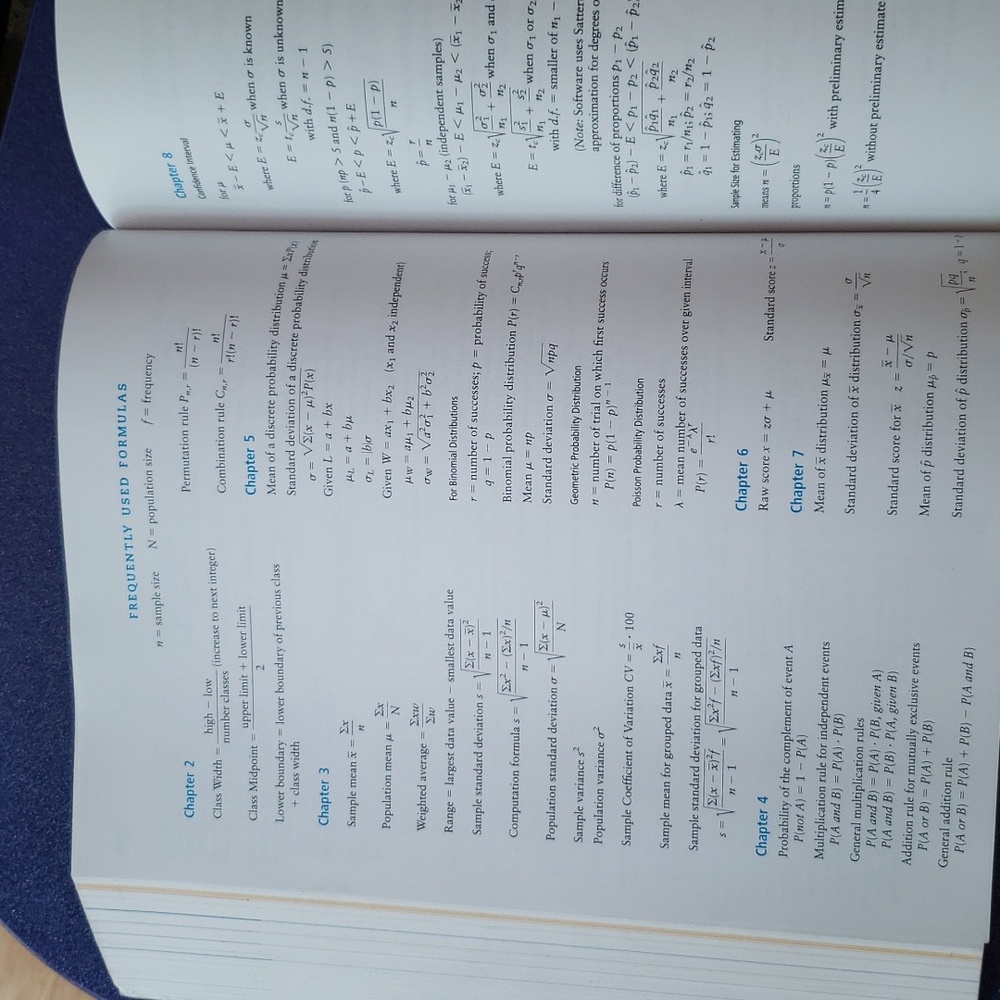 FREQUENTLY USED FORMULAS
n = sample size N = population size f = frequency
Chapter 2
Class Width = (high − low) / (number classes) (increase to next integer)
Class Midpoint = (upper limit + lower limit) / 2
Lower boundary = lower boundary of previous class
+ class width
Chapter 3
Sample mean x̄ = Σx / n
Population mean μ = Σx / N
Weighted average = Σxw / Σw
Range = largest data value − smallest data value
Sample standard deviation s = √(Σ(x − x̄)² / (n − 1))
Computation formula s = √((Σx² − (Σx)²/n) / (n − 1))
Population standard deviation σ = √(Σ(x − μ)² / N)
Sample variance s²
Population variance σ²
Sample Coefficient of Variation CV = s / x̄ · 100
Sample mean for grouped data x̄ = Σxf / n
Sample standard deviation for grouped data
s = √(Σ(x − x̄)²f / (n − 1)) = √((Σx²f − (Σxf)²/n) / (n − 1))
Chapter 4
Probability of the complement of event A
P(not A) = 1 − P(A)
Multiplication rule for independent events
P(A and B) = P(A) · P(B)
General multiplication rules
P(A and B) = P(A) · P(B, given A)
P(A and B) = P(B) · P(A, given B)
Addition rule for mutually exclusive events
P(A or B) = P(A) + P(B)
General addition rule
P(A or B) = P(A) + P(B) − P(A and B)
Permutation rule Pn,r = n! / (n − r)!
Combination rule Cn,r = n! / r!(n − r)!
Chapter 5
Mean of a discrete probability distribution μ = ΣxP(x)
Standard deviation of a discrete probability distribution
σ = √(Σ(x − μ)²P(x))
Given L = a + bx
μL = a + bμ
σL = |b|σ
Given W = ax1 + bx2 (x1 and x2 independent)
μW = aμ1 + bμ2
σW = √(a²σ1² + b²σ2²)
For Binomial Distributions
r = number of successes; p = probability of success;
q = 1 − p
Binomial probability distribution P(r) = Cn,r p^r q^(n−r)
Mean μ = np
Standard deviation σ = √npq
Geometric Probability Distribution
n = number of trial on which first success occurs
P(n) = p(1 − p)^(n − 1)
Poisson Probability Distribution
r = number of successes
λ = mean number of successes over given interval
P(r) = e^(−λ)λ^r / r!
Chapter 6
Raw score x = zσ + μ Standard score z = (x − μ) / σ
Chapter 7
Mean of x̄ distribution μx̄ = μ
Standard deviation of x̄ distribution σx̄ = σ / √n
Standard score for x̄ z = (x̄ − μ) / (σ/√n)
Mean of p̂ distribution μp̂ = p
Standard deviation of p̂ distribution σp̂ = √(pq / n); q = 1 −
Chapter 8
Confidence Interval
for μ
x̄ − E < μ < x̄ + E
where E = zc σ/√n when σ is known
E = tc s/√n when σ is unknown
with d.f. = n − 1
for p (np > 5 and n(1 − p) > 5)
p̂ − E < p < p̂ + E
where E = zc √(p̂(1 − p̂) / n)
p̂ = r / n
for μ1 − μ2 (independent samples)
(x̄1 − x̄2) − E < μ1 − μ2 < (x̄1 − x̄2
where E = zc √(σ1²/n1 + σ2²/n2) when σ1 and
E = tc √(s1²/n1 + s2²/n2) when σ1 or σ2
with d.f. = smaller of n1 −
(Note: Software uses
approximation for degrees o
for difference of proportions p1 − p2
(p̂1 − p̂2) − E < p1 − p2 < (p̂1 − p̂2
where E = zc √(p̂1q̂1/n1 + p̂2q̂2/n2)
p̂1 = r1/n1; p̂2 = r2/n2
q̂1 = 1 − p̂1; q̂2 = 1 − p̂2
Sample Size for Estimating
means n = (zcσ / E)²
proportions
n = p(1 − p)(zc / E)² with preliminary estim
n = 1/4 (zc / E)² without preliminary estimate